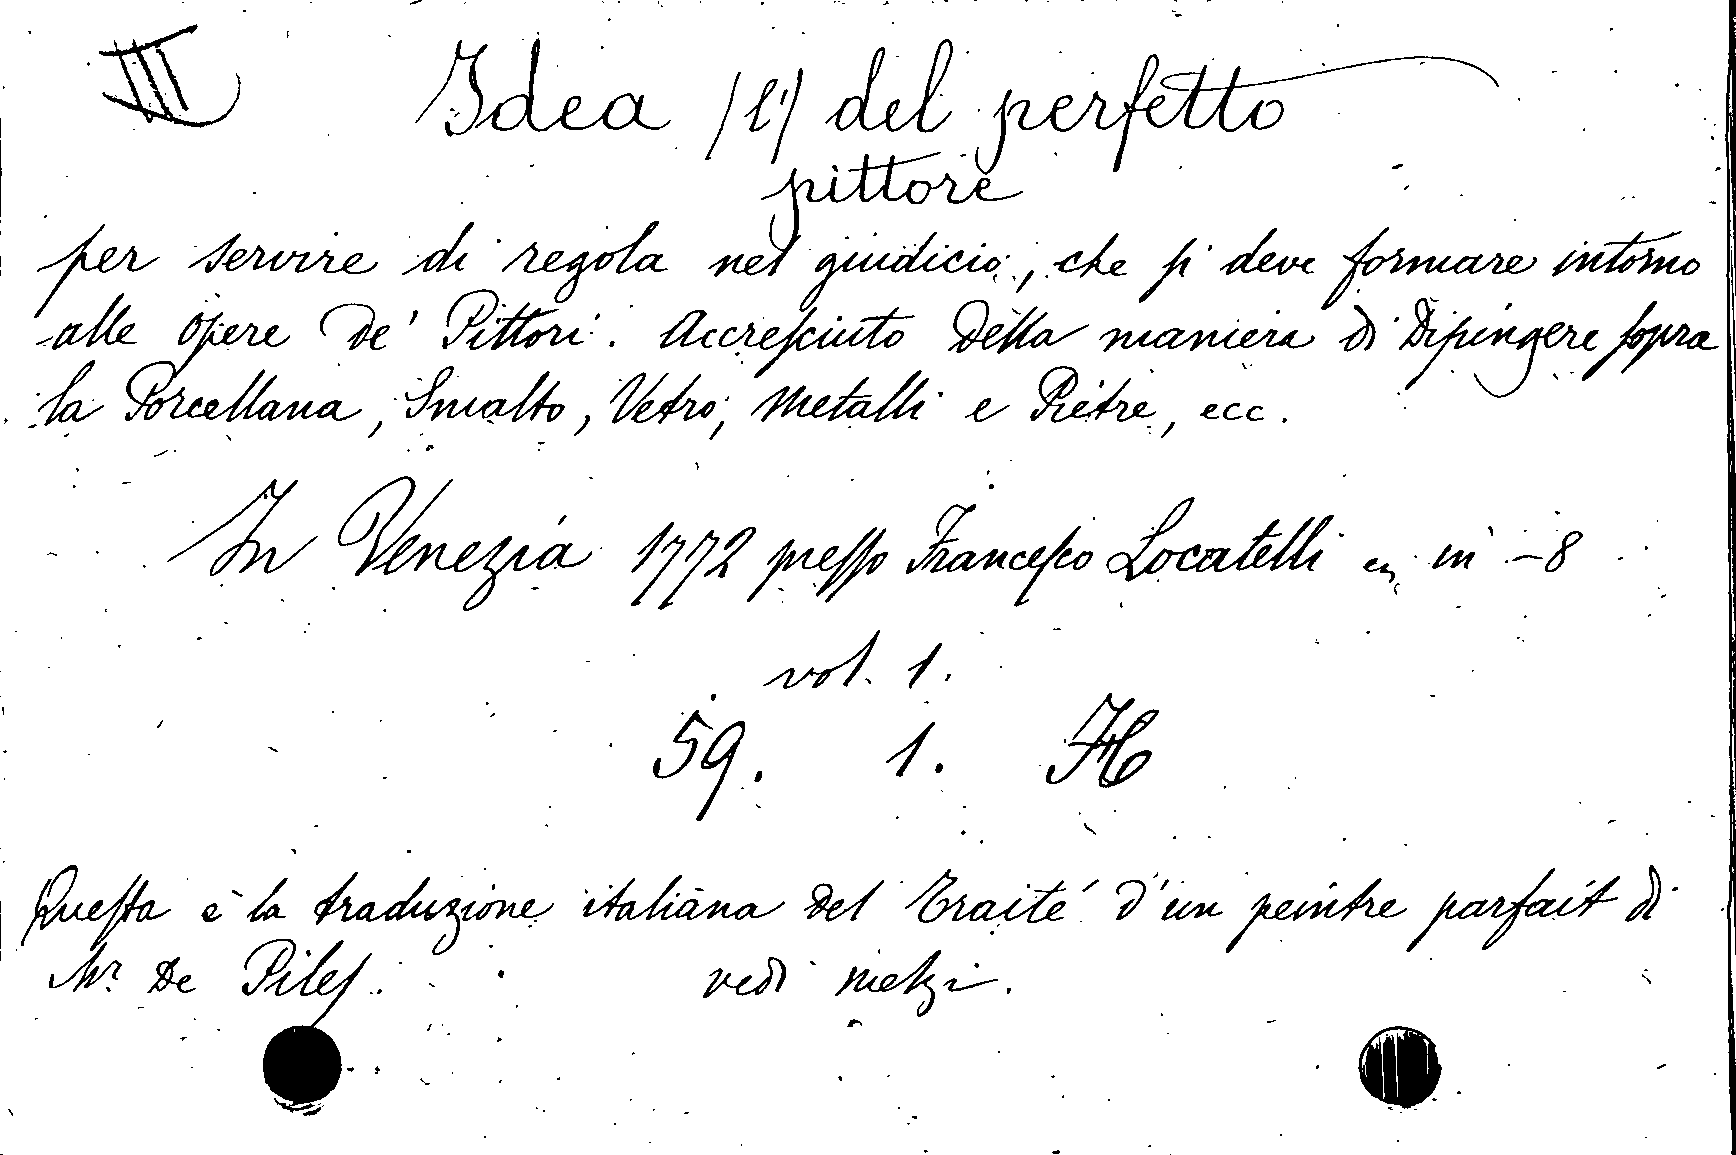 III
Idea /l'/ del perfetto
pittore
per servire di regola nel giudicio, che si deve formare intorno
alle Opere de' Pittori. Accresciuto della maniera di Dipingere sopra
la Porcellana, Smalto, Vetro, Metalli e Pietre, ecc.
In Venezia 1772 presso Francesco Locatelli in -8
vol. 1.
59. 1. H
Questa è la traduzione italiana del Traité d'un peintre parfait di
Mr. De Piles. vedi Melzi.